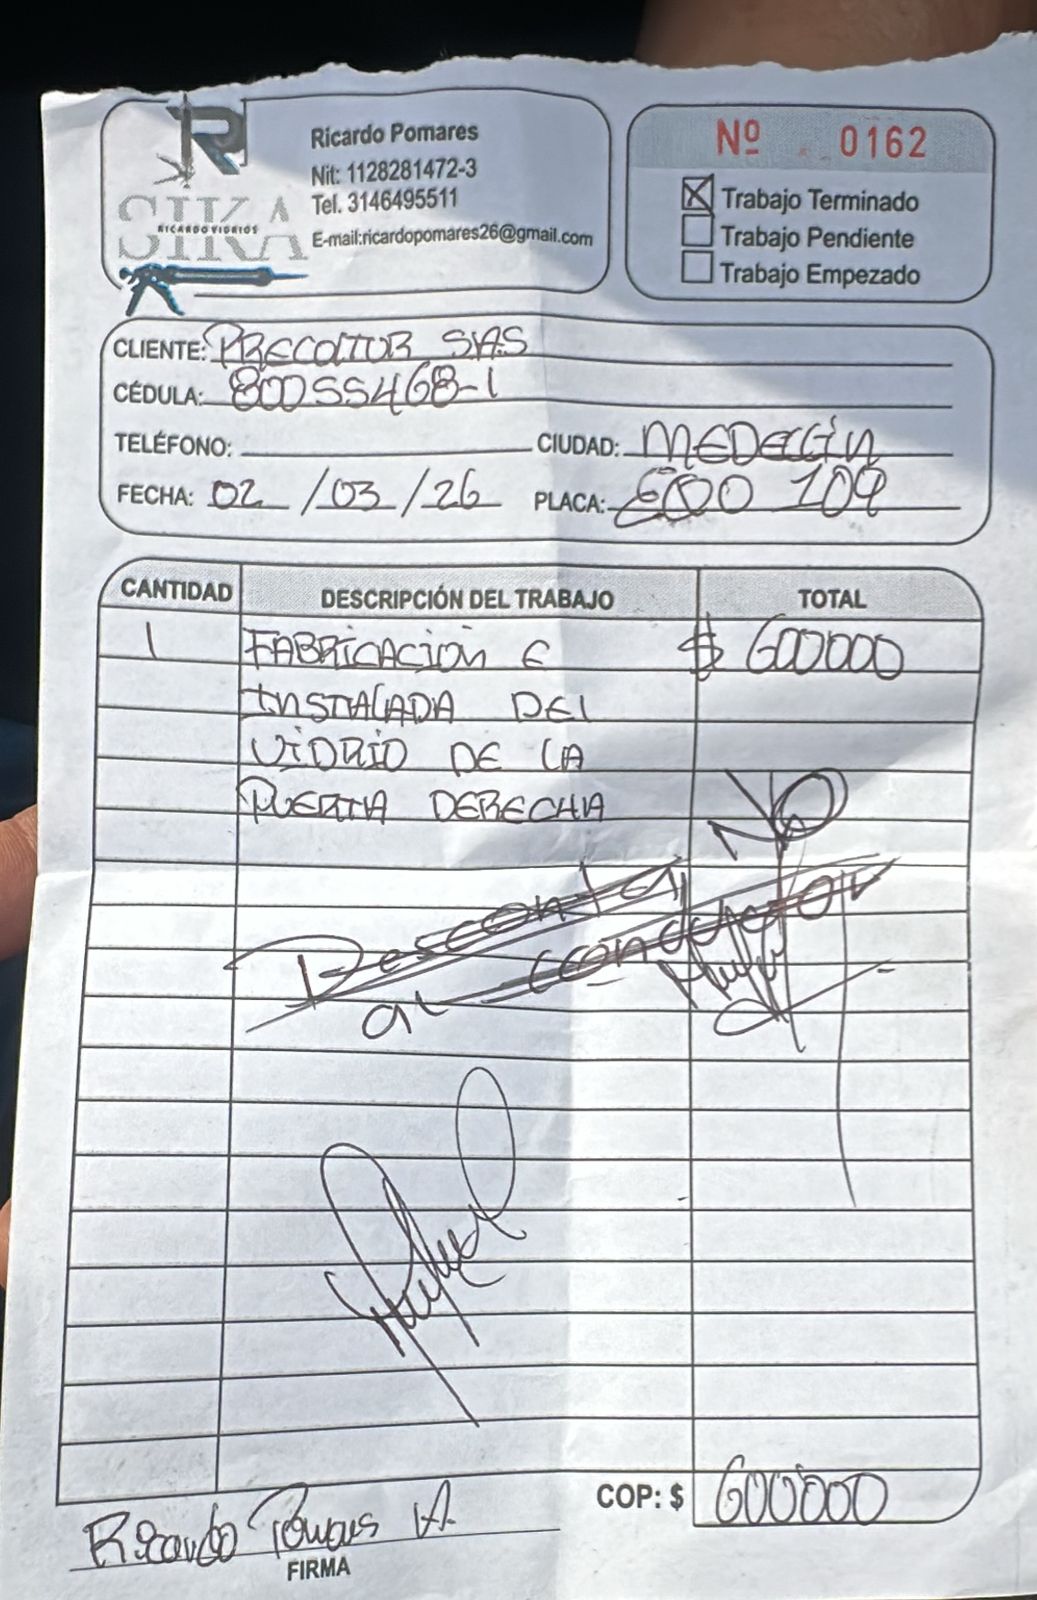 Ricardo Pomares
Nit: 1128281472-3
Tel. 3146495511
E-mail:ricardopomares26@gmail.com
R
SIKA
RICARDO VIDRIOS
Nº 0162
X Trabajo Terminado
Trabajo Pendiente
Trabajo Empezado
CLIENTE: PRECOLTUR S.A.S
CÉDULA: 80055468-1
TELÉFONO: CIUDAD: MEDELLÍN
FECHA: 02 /03 /26 PLACA: 109
CANTIDAD DESCRIPCIÓN DEL TRABAJO TOTAL
1 FABRICACIÓN E $ 600000
INSTALADA DEL
VIDRIO DE LA
PUERTA DERECHA
NO
Descontar
al conductor
COP: $ 600000
Ricardo Pomares
FIRMA